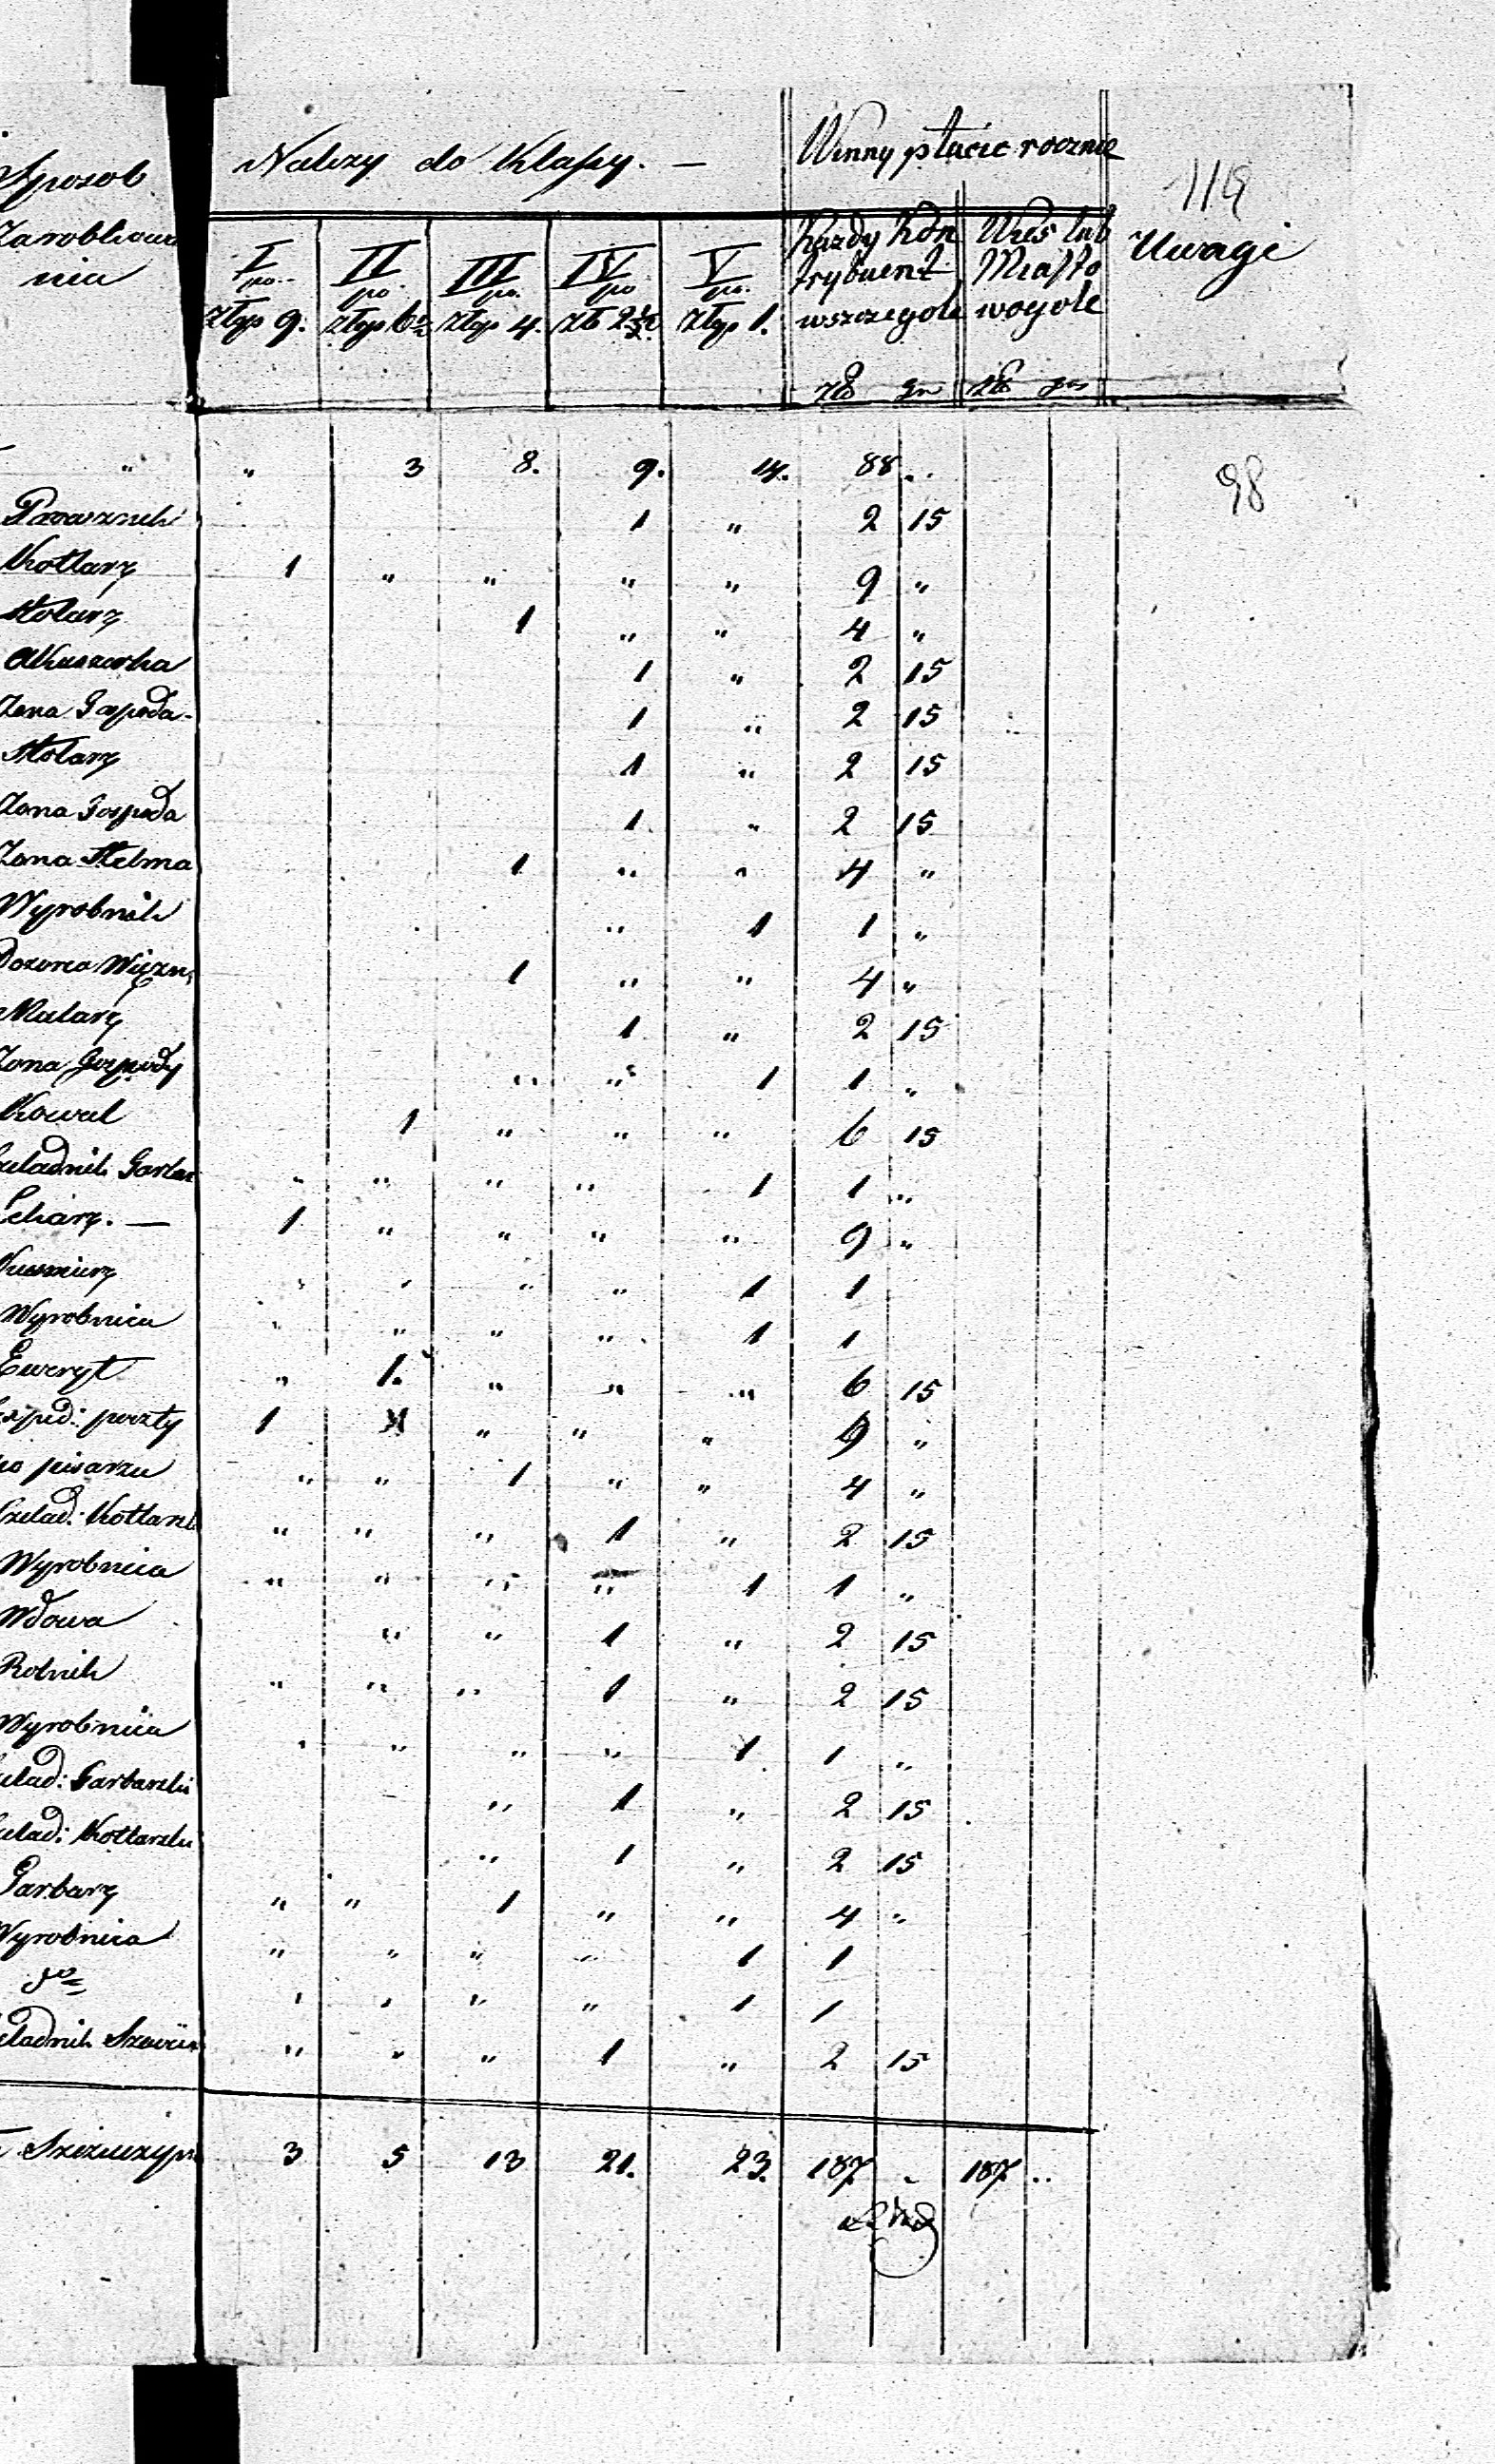 Sposob
Zarobkowa
nia
Należy do Klassy. —
Winny płacić rocznie
119
I II III IV V
po po po po po
złłp 9. złłp 6½ złłp 4. zło 2½ złłp 1.
Każdy Kon
trybuent
wszczegole
Wieś lub
Miasto
wogole
Uwagi
zło gr zło gr
" " 3 8. 9. 14. 88 "
98
1 " 2 15
Kotlarz 1 " " " " 9 "
Stolarz 1 " " 4 "
Akuszerka 1 " 2 15
Zona Gospoda 1 " 2 15
Stolarz 1 " 2 15
Zona Gospoda 1 " 2 15
Zona Stelma 1 " " 4 "
Wyrobnik " 1 1 "
Dozorca Więzn 1 " " 4 "
Malarz 1 " 2 15
Zona Gospody " " 1 1 "
Kowal 1 " " " 6 15
zeladnik Garbar " " " " 1 1 "
Lekarz. — 1 " " " " 9 "
Kusnierz " " " " 1 1
Wyrobnica " " " " 1 1
Emeryt " 1. " " " 6 15
exped: poczty 1 " " " 9 "
po pisarzu " " 1 " " 4 "
Czelad: Kotlars " " " 1 " 2 15
Wyrobnica " " " " 1 1 "
Wdowa " " 1 " 2 15
Rolnik " " " 1 " 2 15
Wyrobnica " " " " 1 1 "
zelad: Garbarski " 1 " 2 15
zelad: Kotlarski " 1 " 2 15
Garbarz " " 1 " " 4 "
Wyrobnica " " " " 1 1
do " " " " 1 1
zeladnik Szewck " " " 1 " 2 15
3 5 13 21. 23. 187 " 187 "